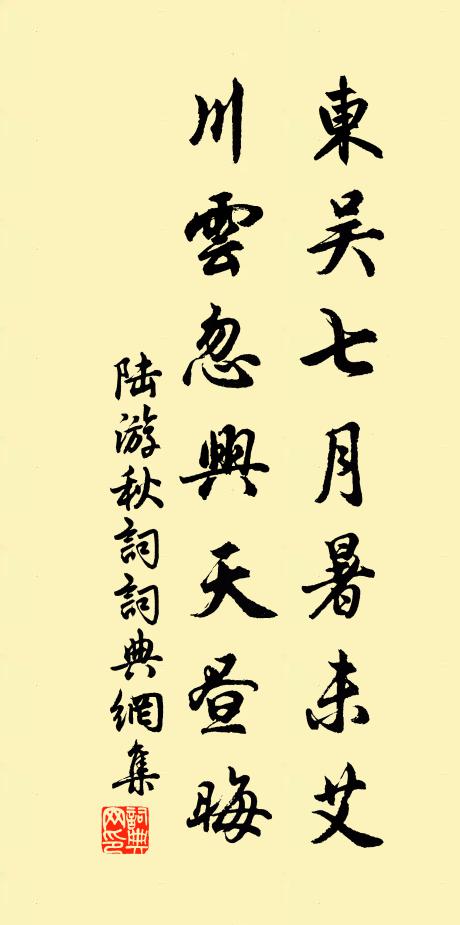 東吴七月暑未艾
川雲忽興天昼晦
陆游秋詞詞典網集
詞典网印